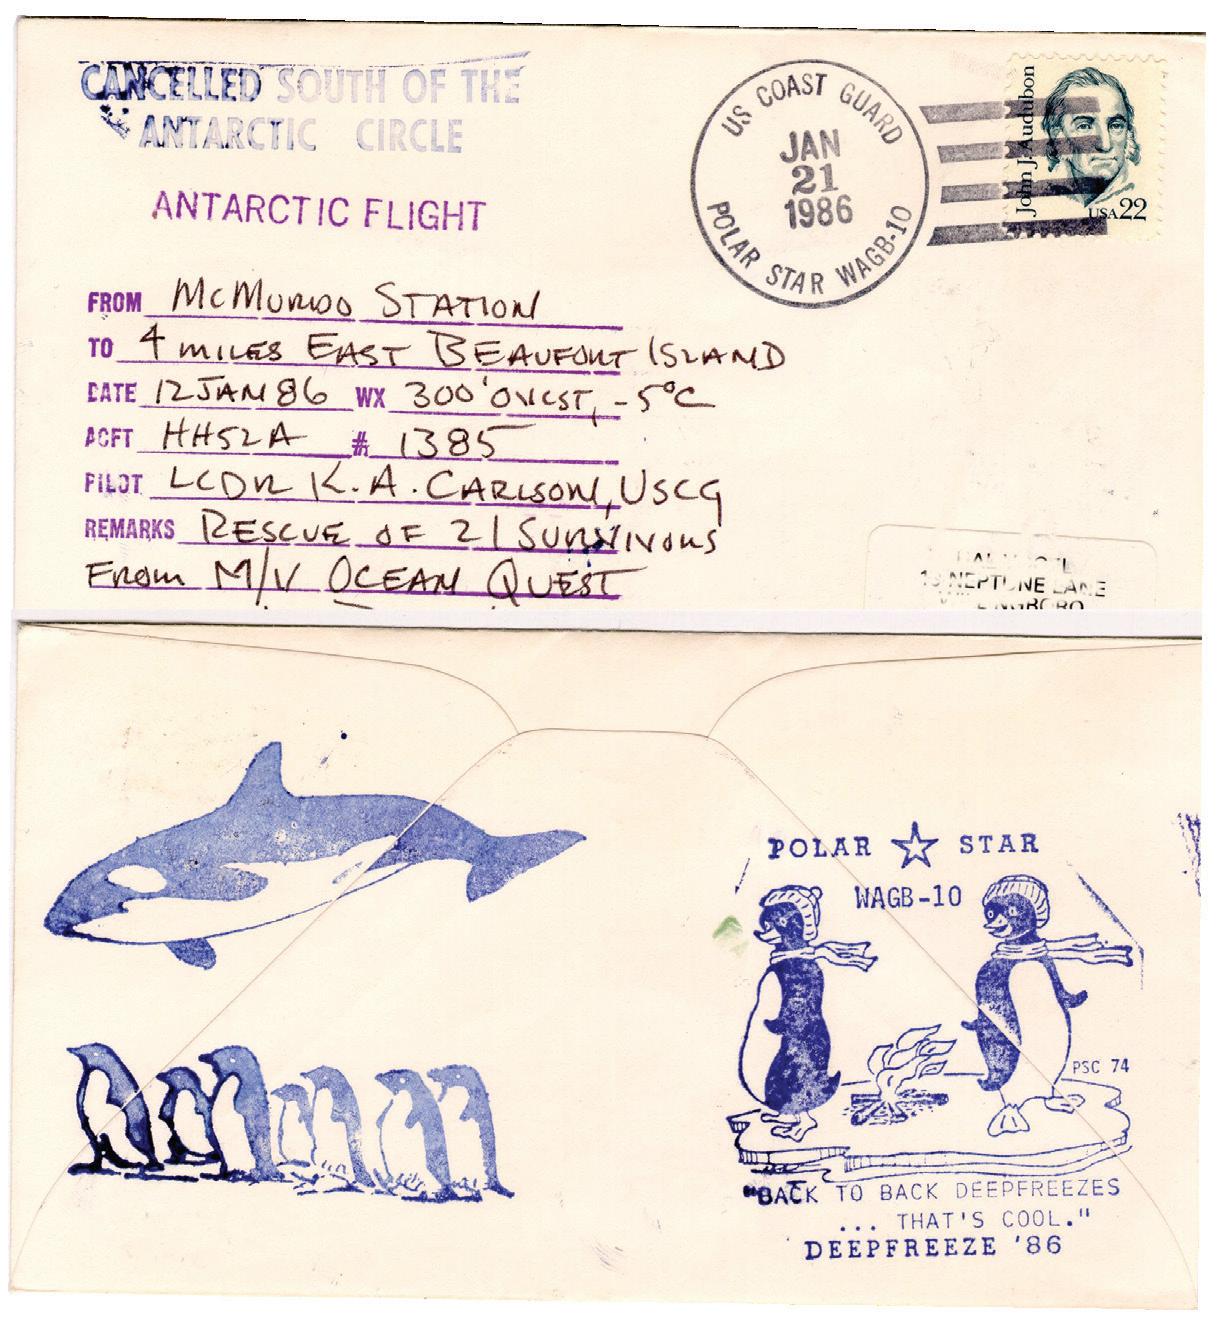 CANCELLED SOUTH OF THE
ANTARCTIC CIRCLE
ANTARCTIC FLIGHT
US COAST GUARD
JAN
21
1986
POLAR STAR WAGB-10
John J. Audubon
USA 22
FROM McMURDO STATION
TO 4 MILES EAST BEAUFORT ISLAND
DATE 12 JAN 86 WX 300' OVCST, -5°C
ACFT HH52A # 1385
PILOT LCDR K. A. CARLSON, USCG
REMARKS RESCUE OF 21 SURVIVORS
FROM M/V OCEAN QUEST
NEPTUNE LANE
POLAR STAR
WAGB-10
PSC 74
"BACK TO BACK DEEPFREEZES
... THAT'S COOL."
DEEPFREEZE '86